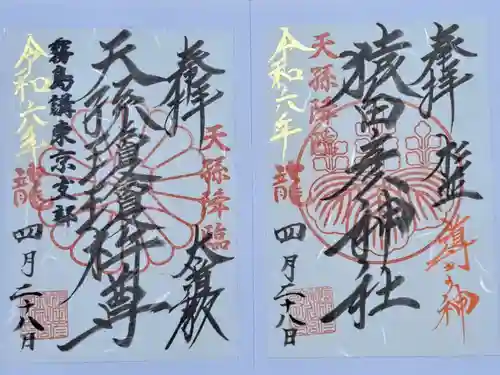 奉拝
天孫降臨
天孫瓊瓊杵尊
霧島講東京支部
令和六年
龍
四月二十八日
奉拝
猿田彦神社
天孫降臨
令和六年
龍
四月二十八日